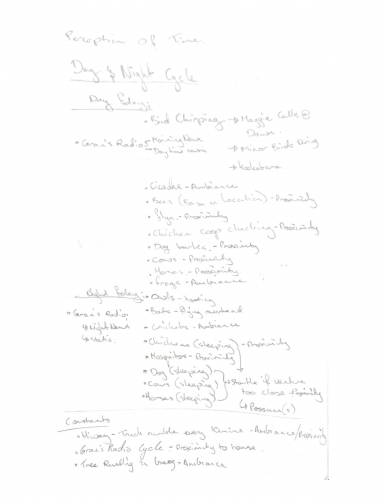 Perception of Time
Day & Night Cycle
Day Foley:
• Bird Chirping → Magpie Calls @
Dawn
→ Minor Birds During
→ Kookabura
• Gran's Radio
→ Morning News
→ Daytime
• Cicadas - Ambiance
• Bees (Base on Location) - Proximity
• Flys - Proximity
• Chicken coop clucking - Proximity
• Dog barks - Proximity
• Cows - Proximity
• Horses - Proximity
• Frogs - Ambiance
Night Foley:
• Owls - hooting
• Gran's Radio
→ Night News
→ Static
• Bats - flying overhead
• Crickets - Ambiance
• Chickens (sleeping) - Proximity
• Mosquitos - Proximity
• Dog (sleeping)
• Cows (sleeping)
• Horses (sleeping)
→ Startle if venture
too close proximity
→ Possum(s)
Constants
• Hiway - Truck rumble every - Ambiance/Proximity
• Gran's Radio Cycle - Proximity to house
• Tree Rustling in breeze - Ambiance